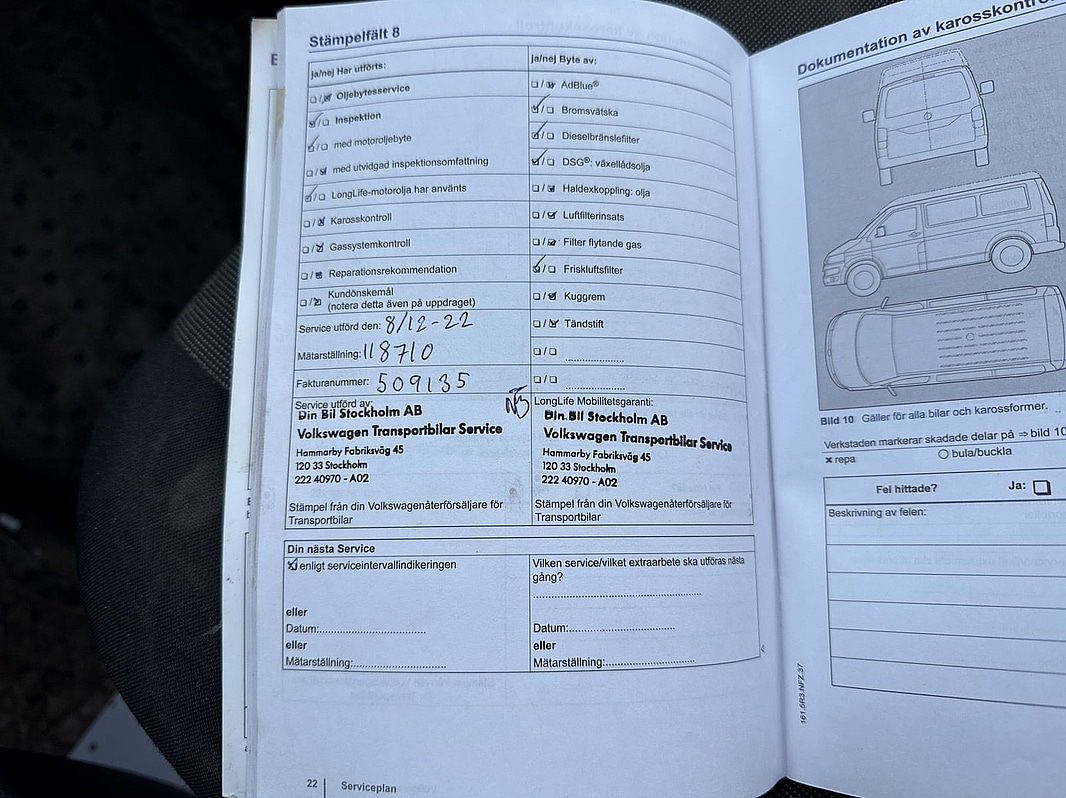 Stämpelfält 8
ja/nej Har utförts:
☐/☑ Oljebytesservice
☑/☐ Inspektion
☑/☐ med motoroljebyte
☐/☑ med utvidgad inspektionsomfattning
☑/☐ LongLife-motorolja har använts
☐/☑ Karosskontroll
☐/☑ Gassystemkontroll
☐/☑ Reparationsrekommendation
☐/☑ Kundönskemål
(notera detta även på uppdraget)
Service utförd den: 8/12-22
Mätarställning: 118710
Fakturanummer: 509135
Service utförd av:
Din Bil Stockholm AB
Volkswagen Transportbilar Service
Hammarby Fabriksväg 45
120 33 Stockholm
222 40970 - A02
Stämpel från din Volkswagenåterförsäljare för
Transportbilar
ja/nej Byte av:
☐/☑ AdBlue®
☑/☐ Bromsvätska
☑/☐ Dieselbränslefilter
☑/☐ DSG®: växellådsolja
☐/☑ Haldexkoppling: olja
☐/☑ Luftfilterinsats
☐/☑ Filter flytande gas
☑/☐ Friskluftsfilter
☐/☑ Kuggrem
☐/☑ Tändstift
☐/☐ ......................
☐/☐ ......................
LongLife Mobilitetsgaranti:
Din Bil Stockholm AB
Volkswagen Transportbilar Service
Hammarby Fabriksväg 45
120 33 Stockholm
222 40970 - A02
Stämpel från din Volkswagenåterförsäljare för
Transportbilar
Din nästa Service
☑ enligt serviceintervallindikeringen
eller
Datum:..............................
eller
Mätarställning:..........................
Vilken service/vilket extraarbete ska utföras nästa
gång?
..................................................
Datum:..............................
eller
Mätarställning:..........................
22 | Serviceplan
Dokumentation av karosskontro
Bild 10 Gäller för alla bilar och karossformer.
Verkstaden markerar skadade delar på ⇒ bild 10
✖ repa
○ bula/buckla
Fel hittade?
Ja: ☐
Beskrivning av felen:
161.5R3.NFZ.37